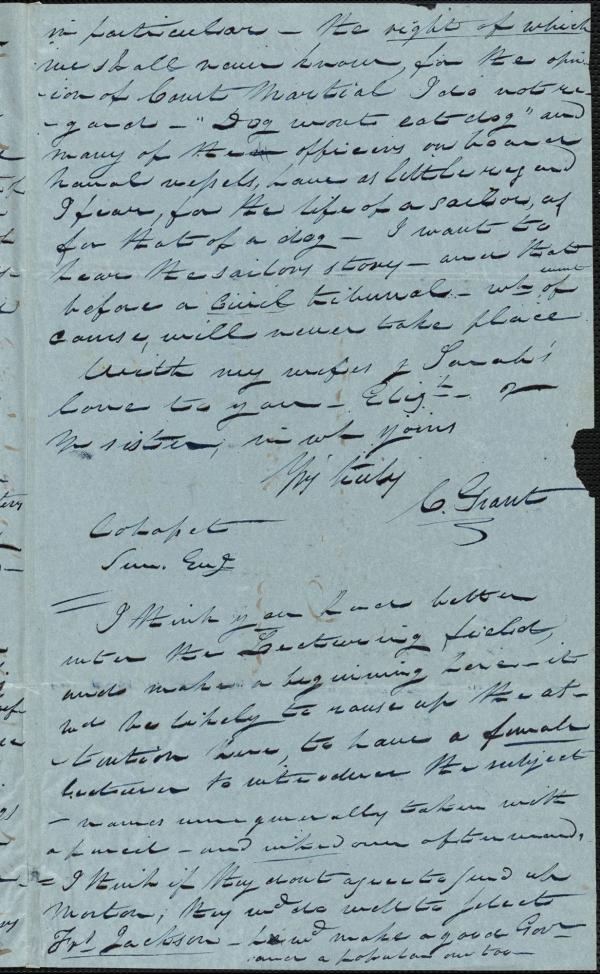 in particular — the right of which
we shall never know, for the opin-
-ion of Court Martial I do not re-
-gard — "Dog wont eat dog" and
many of the officers on board
naval vessels, have as little regard
I fear, for the life of a sailor, as
for that of a dog — I want to
hear the sailors story — and that
before a Civil tribunal — wh event of
course, will never take place
With my wifes & Sarah's
love to you — Eliz.th — &
Yr sister, in wh joins
Yrs truly
C. Grant
Cohasset
Sun. Eve
= I think you had better
enter the Lecturing field,
and make a beginning here — it
wd be likely to rouse up the at-
-tention here, to have a female
lecturer to introduce the subject
— names were generally taken with
a pencil — and inked over afterward,
= I think if they dont agree to send up
Morton, they wd do well to select
Frs Jackson — he wd make a good Gov
and a popular one too —